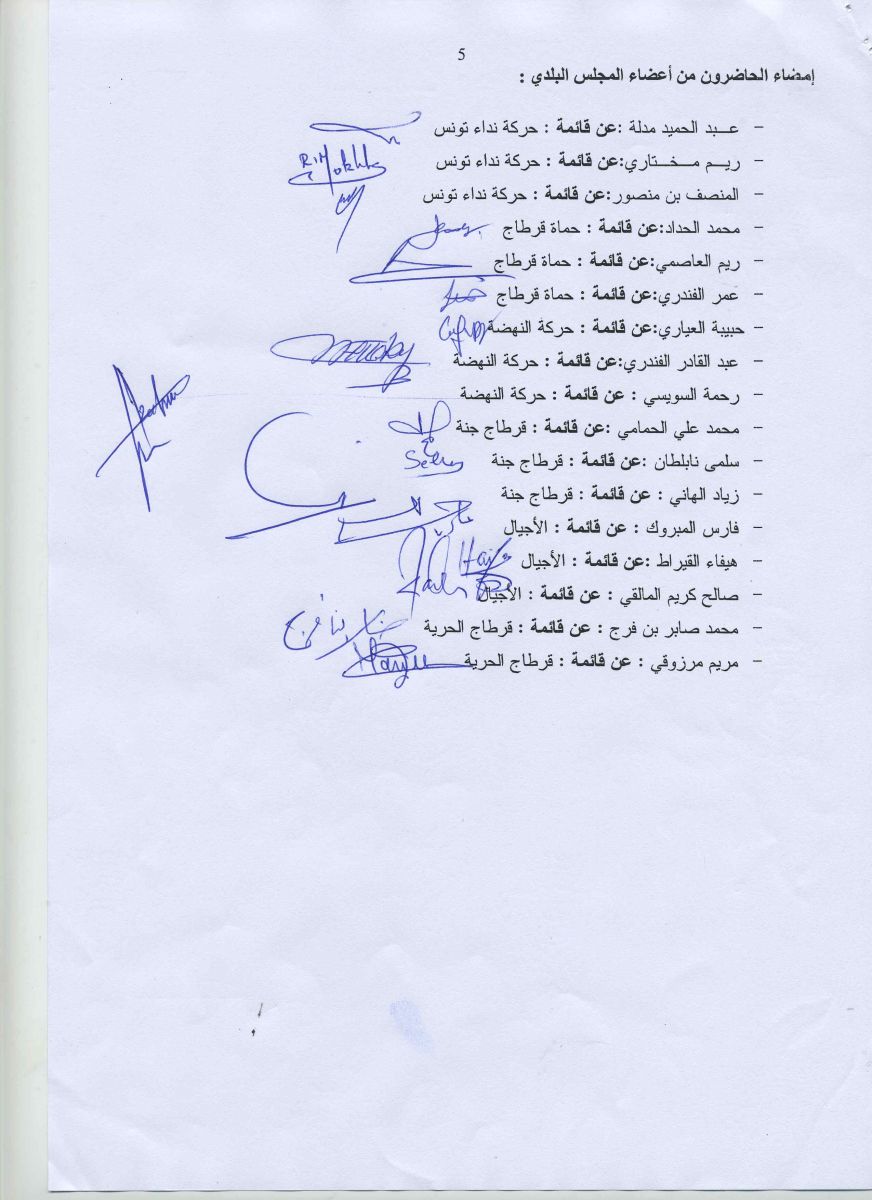 5
إمضاء الحاضرون من أعضاء المجلس البلدي :
- عـــبد الحميد مدلة :عن قائمة : حركة نداء تونس
- ريـــم مـــخـــتاري:عن قائمة : حركة نداء تونس
R.Mokhta
- المنصف بن منصور:عن قائمة : حركة نداء تونس
- محمد الحداد:عن قائمة : حماة قرطاج
- ريم العاصمي:عن قائمة : حماة قرطاج
- عمر الفندري:عن قائمة : حماة قرطاج
- حبيبة العياري:عن قائمة : حركة النهضة
- عبد القادر الفندري:عن قائمة : حركة النهضة
- رحمة السويسي : عن قائمة : حركة النهضة
- محمد علي الحمامي :عن قائمة : قرطاج جنة
- سلمى نابلطان :عن قائمة : قرطاج جنة
- زياد الهاني : عن قائمة : قرطاج جنة
- فارس المبروك : عن قائمة : الأجيال
- هيفاء القيراط :عن قائمة : الأجيال
- صالح كريم المالقي : عن قائمة : الأجيال
- محمد صابر بن فرج : عن قائمة : قرطاج الحرية
صابر بن فرج
- مريم مرزوقي : عن قائمة : قرطاج الحرية